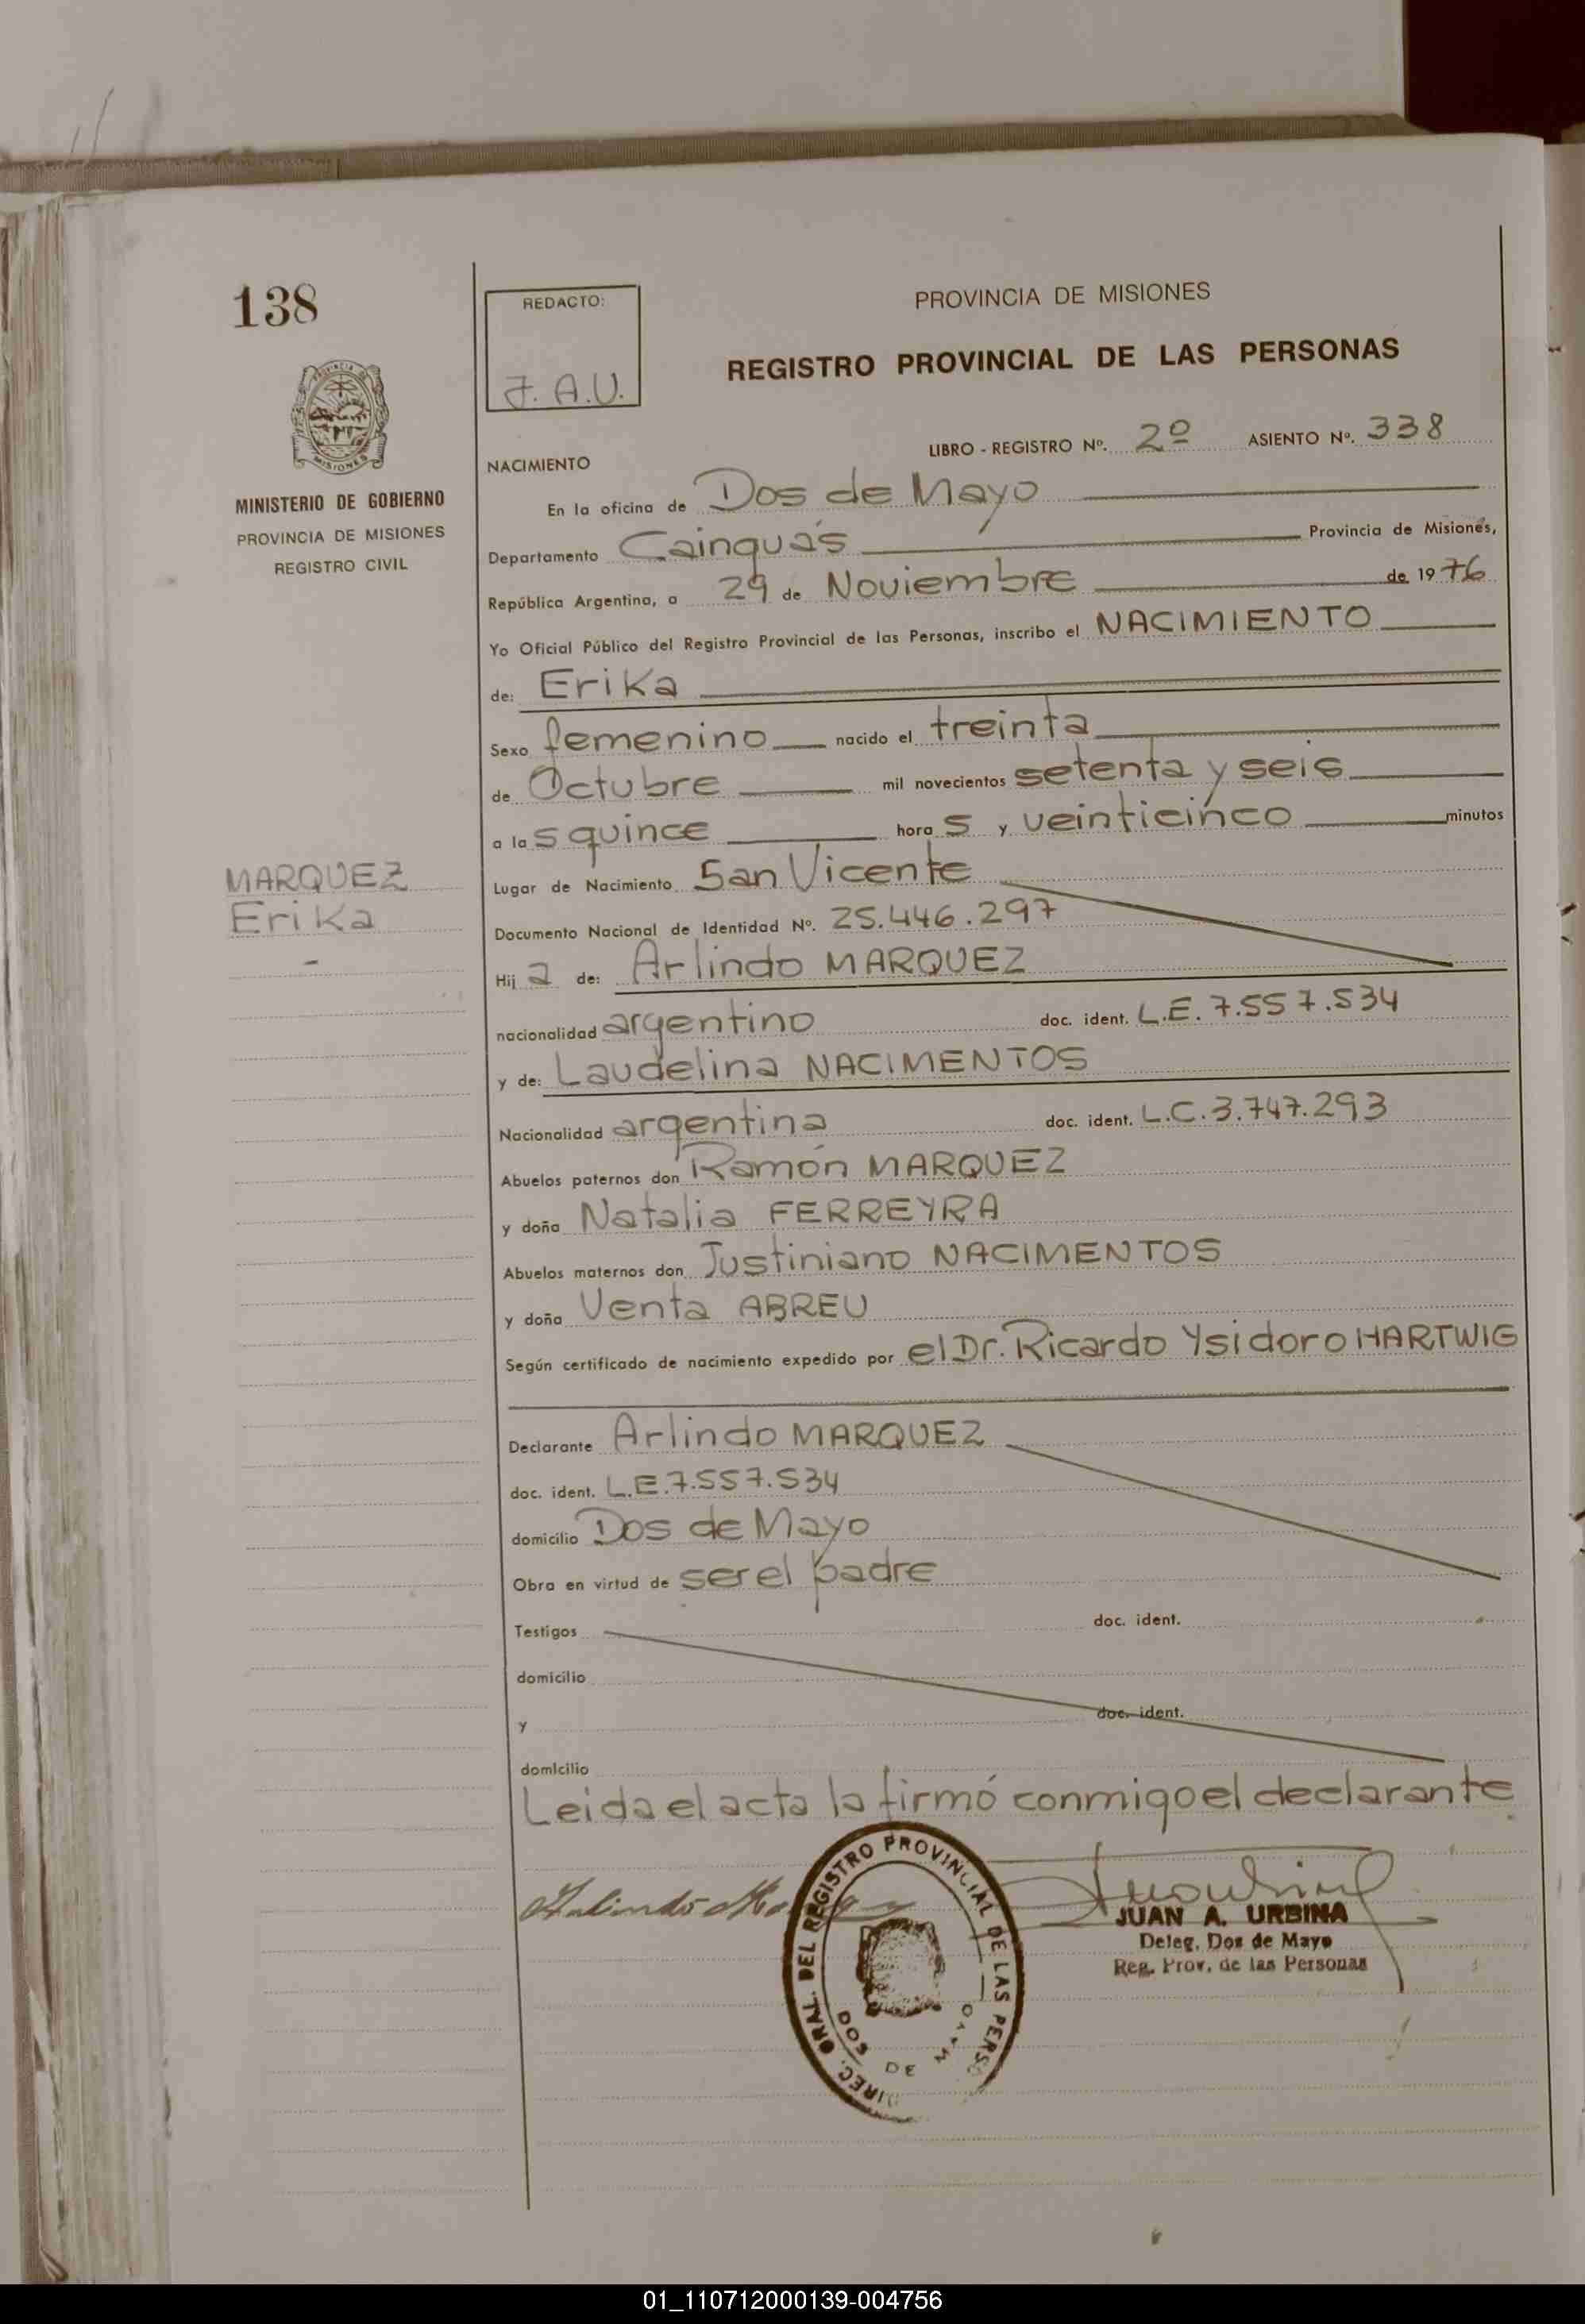 138
REDACTO:
J. A.U.
PROVINCIA DE MISIONES
REGISTRO PROVINCIAL DE LAS PERSONAS
PROVINCIA DE MISIONES
MINISTERIO DE GOBIERNO
PROVINCIA DE MISIONES
REGISTRO CIVIL
LIBRO - REGISTRO Nº. 2º ASIENTO Nº. 338
NACIMIENTO
En la oficina de Dos de Mayo
Departamento Cainguás Provincia de Misiones,
República Argentina, a 29 de Noviembre de 1976
Yo Oficial Público del Registro Provincial de las Personas, inscribo el NACIMIENTO
de: Erika
Sexo femenino nacido el treinta
de Octubre mil novecientos setenta y seis
a las quince horas y veinticinco minutos
MARQUEZ
Erika
Lugar de Nacimiento San Vicente
Documento Nacional de Identidad Nº. 25.446.297
Hija de: Arlindo MARQUEZ
nacionalidad argentino doc. ident. L.E. 7.557.534
y de: Laudelina NACIMENTOS
Nacionalidad argentina doc. ident. L.C. 3.747.293
Abuelos paternos don Ramón MARQUEZ
y doña Natalia FERREYRA
Abuelos maternos don Justiniano NACIMENTOS
y doña Venta ABREU
Según certificado de nacimiento expedido por el Dr. Ricardo Ysidoro HARTWIG
Declarante Arlindo MARQUEZ
doc. ident. L.E. 7.557.534
domicilio Dos de Mayo
Obra en virtud de ser el padre
Testigos doc. ident.
domicilio
y doc. ident.
domicilio
Leida el acta la firmó conmigo el declarante.
DIREC. GRAL. DEL REGISTRO PROVINCIAL DE LAS PERS
DOS DE MAYO
JUAN A. URBINA
Deleg. Dos de Mayo
Reg. Prov. de las Personas
01_110712000139-004756